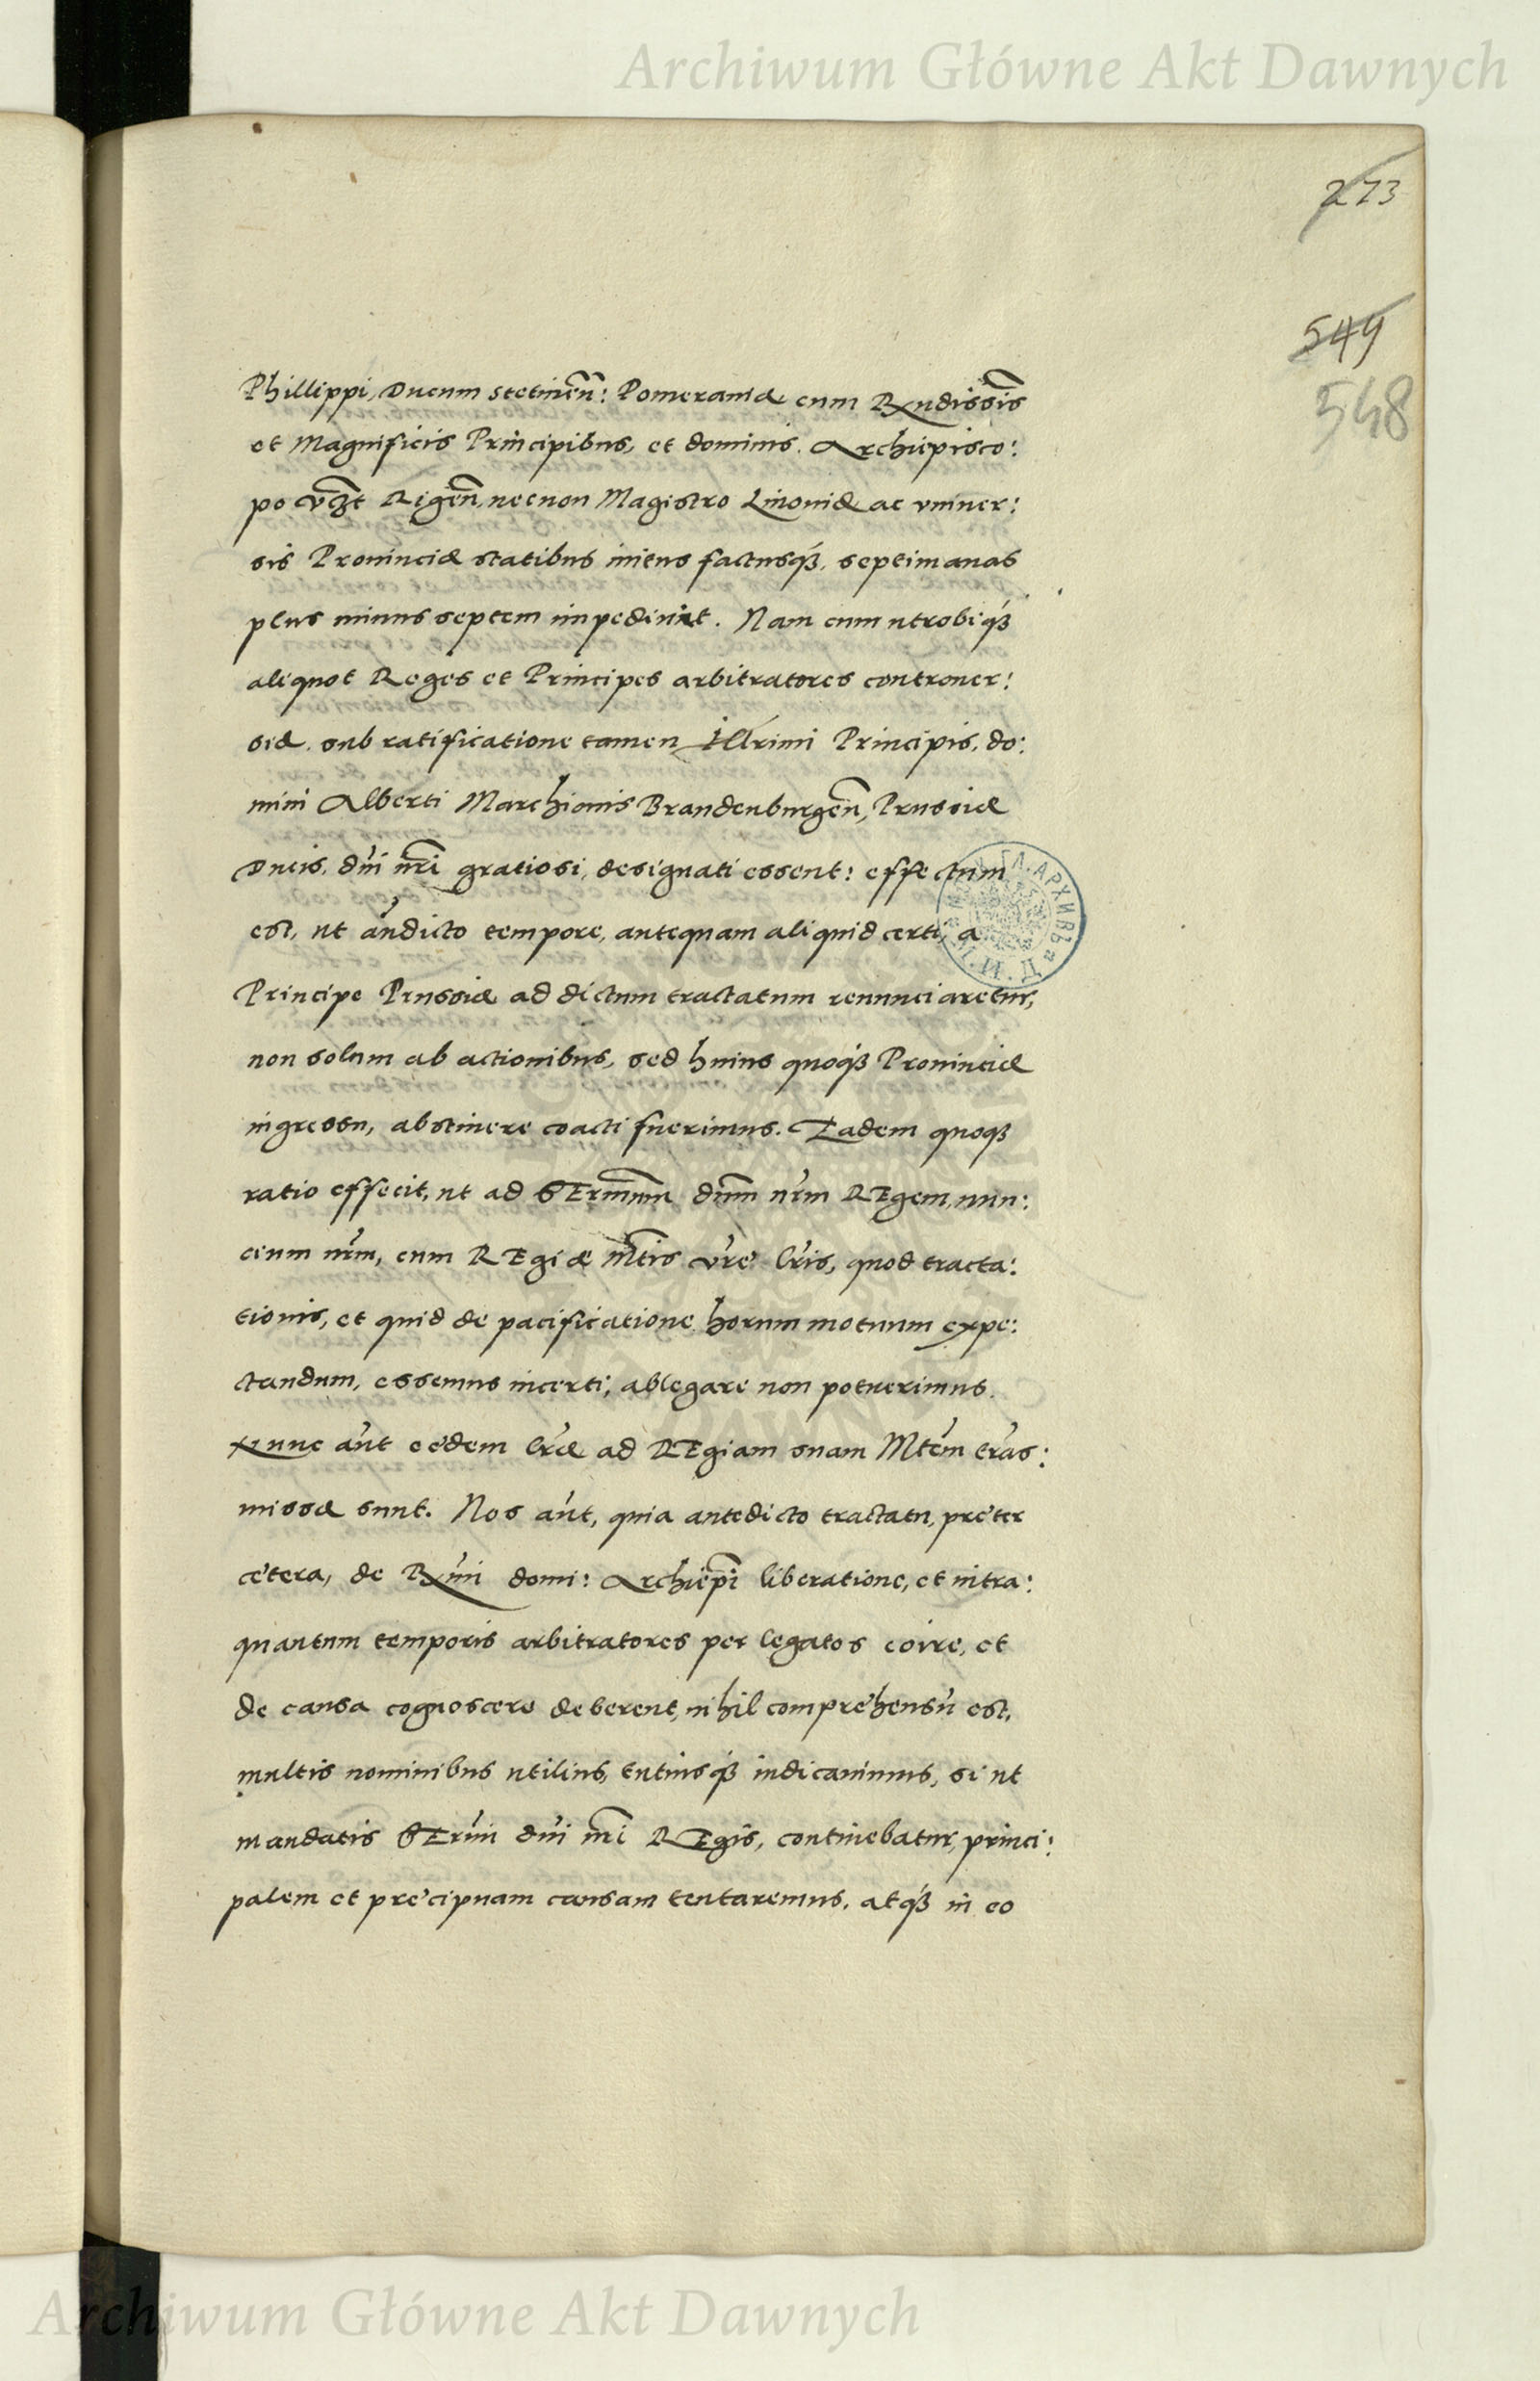 Archiwum Główne Akt Dawnych
273
549
548
Phillippi, Ducum Stetineñ: Pomeraniæ cum Rxndissis̃
et Magnificis Principibus, et dominis. Archiepisco:
po vc̃zt Rigeñ, necnon Magistro Liuoniæ ac vniuer:
sis Prouinciæ statibus initus factusq́3, septimanas
plus minus septem impediuit. Nam cum utrobiq́3
aliquot Reges et Principes arbitratores controuer:
siæ, sub ratificatione tamen Illr̃imi Principis, do:
mini Alberti Marchionis Brandenburgeñ, Prussiæ
Ducis, dñi nr̃i gratiosi, designati essent: effectum
est, ut añdicto tempore, antequam aliquid certi, a
Principe Prussiæ ad dictum tractatum renunciaretur,
non solum ab actionibus, sed huius quoq́3 Prouinciæ
ingressu, abstinere coacti fuerimus. Eadem quoq3
ratio effecit, ut ad SErm̃um dñm nr̃m REgem, nun:
cium nr̃m, cum REgiæ Mt̃is vr̃e l̃ris, quod tracta:
tionis, et quid de pacificatione horum motuum expe:
ctandum, essemus incerti; ablegare non potuerimus.
Nunc aũt eędem l̃ræ ad REgiam suam Mtẽm trãs:
missæ sunt. Nos aũt, quia antedicto tractatu, pręter
cętera, de Rx̃mi domi: Archiep̃i liberatione, et intra:
quantum temporis arbitratores per legatos coire, et
de causa cognoscere deberent, nihil comprehensũ est,
multis nominibus utilius, tutiusq́3 iudicauimus, si ut
mandatis SEr̃mi dñi nr̃i REgis, continebatur, princi:
palem et pręcipuam causam tentaremus, atq́3 in eo
Archiwum Główne Akt Dawnych